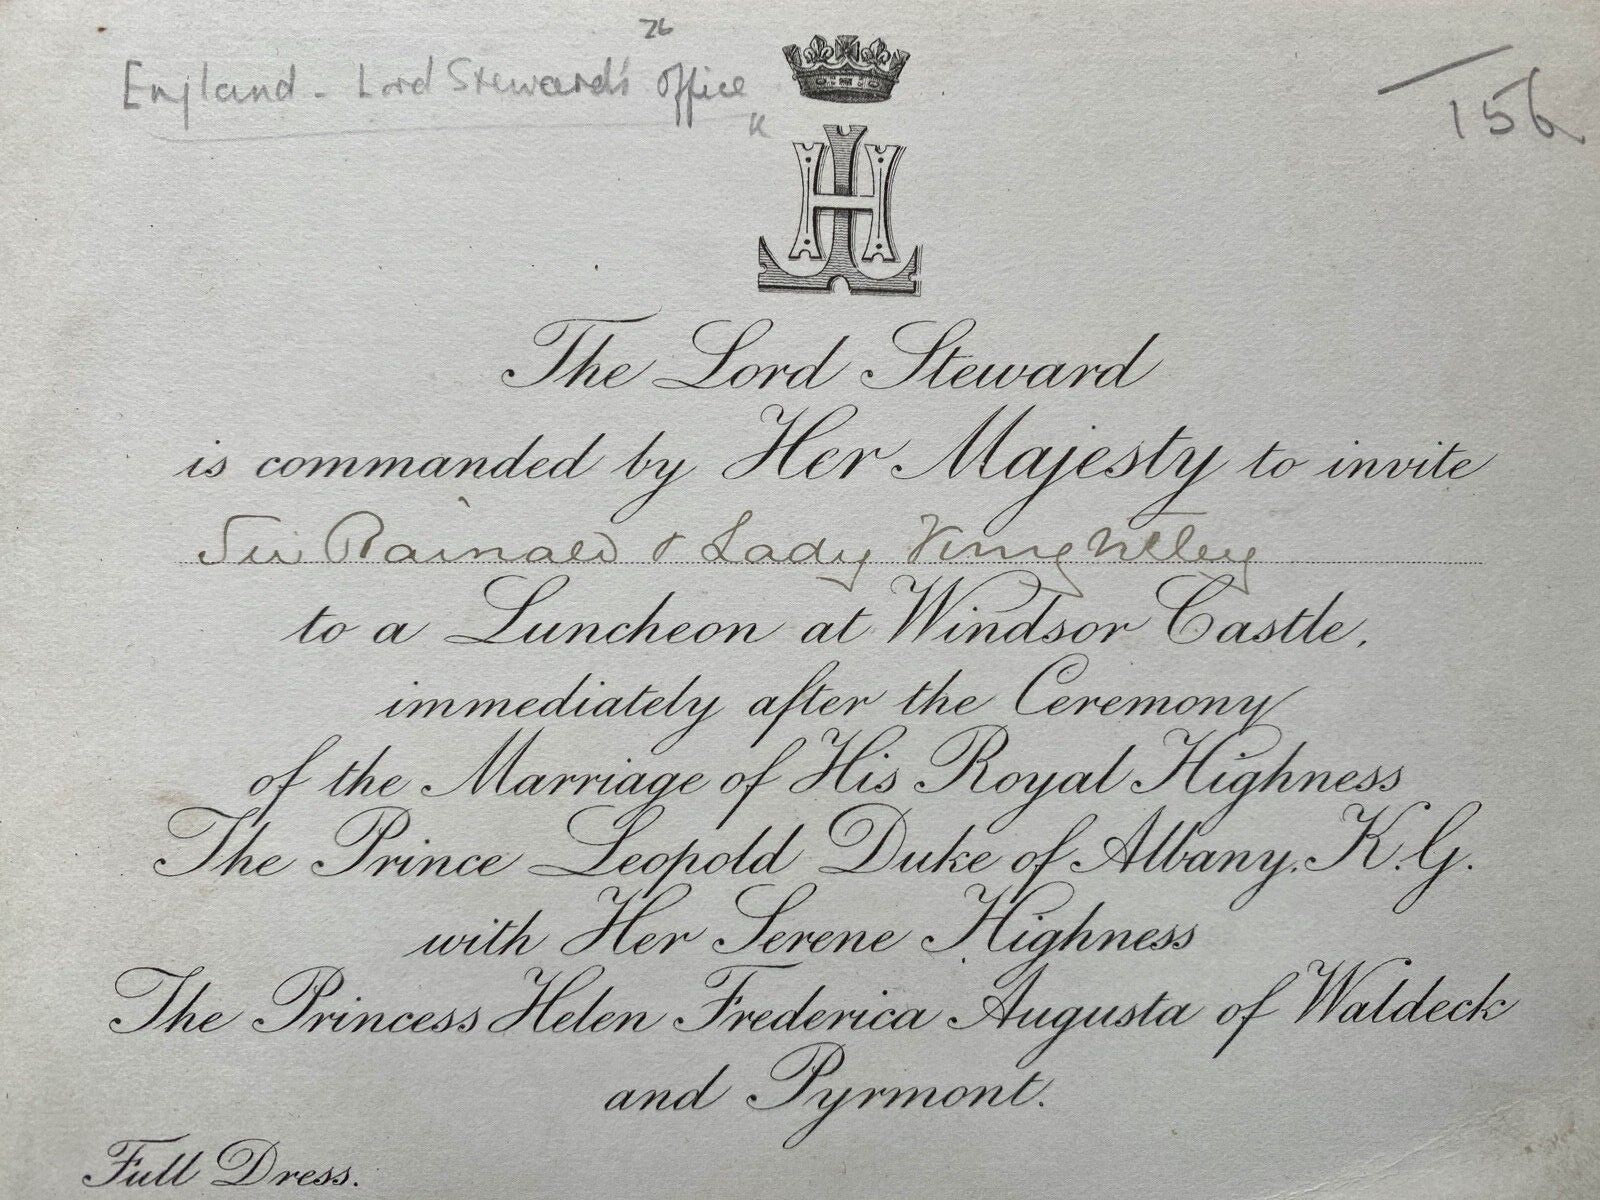 26
England - Lord Steward's Office
K
156
LH
The Lord Steward
is commanded by Her Majesty to invite
Sir Rainald & Lady Knightley
to a Luncheon at Windsor Castle,
immediately after the Ceremony
of the Marriage of His Royal Highness
The Prince Leopold Duke of Albany, K.G.
with Her Serene Highness
The Princess Helen Frederica Augusta of Waldeck
and Pyrmont.
Full Dress.